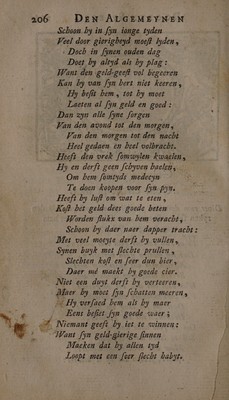 206 DEN ALGEMEYNEN
Schoon hy in syn ionge tyden
Veel door gierigheyd moest lyden,
Doch in synen ouden dag
Doet hy altyd als hy plag:
Want den geld-geest vol begeeren
Kan hy van syn hert niet keeren,
Hy besit hem, tot hy moet
Laeten al syn geld en goed:
Dan zyn alle syne sorgen
Van den avond tot den morgen,
Van den morgen tot den nacht
Heel gedaen en heel volbracht.
Heeft den vrek somwylen kwaelen,
Hy en derft geen schyven haelen,
Om hem somtyds medecyn
Te doen koopen voor syn pyn.
Heeft hy lust om wat te eten,
Kost het geld dees goede beten
Worden flukx van hem veracht,
Schoon hy daer naer dapper tracht:
Met veel moeyte derft hy vullen,
Synen buyk met slechte prullen,
Slechten kost en seer dun bier,
Daer mé maekt hy goede cier.
Niet een duyt derft hy verteeren,
Maer hy moet syn schatten meeren,
Hy versaed hem als hy maer
Eens besiet syn goede waer;
Niemant geeft hy iet te winnen:
Want syn geld-gierige sinnen
Maeken dat hy allen tyd
Loopt met een seer slecht habyt.